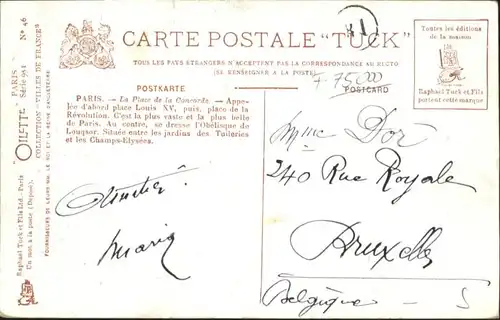 CARTE POSTALE "TUCK"
TOUS LES PAYS ETRANGERS N'ACCEPTENT PAS LA CORRESPONDANCE AU RECTO
(SE RENSEIGNER A LA POSTE)
F. 75000
POSTKARTE
POSTCARD
Toutes les éditions
de la maison
Raphael Tuck et Fils
portent cette marque
PARIS. — La Place de la Concorde. — Appe-
lée d'abord place Louis XV, puis, place de la
Révolution. C'est la plus vaste et la plus belle
de Paris. Au centre, se dresse l'Obélisque de
Louqsor. Située entre les jardins des Tuileries
et les Champs-Elysées.
Maria
Mme Dor
240 Rue Royale
Bruxelles
Belgique
"OILETTE" PARIS Nº 46
Série 951
COLLECTION "VILLES DE FRANCE"
FOURNISSEURS DE LEURS MM. LE ROI ET LA REINE D'ANGLETERRE
Raphael Tuck et Fils Ltd. - Paris
Un mot à la poste (Déposé).